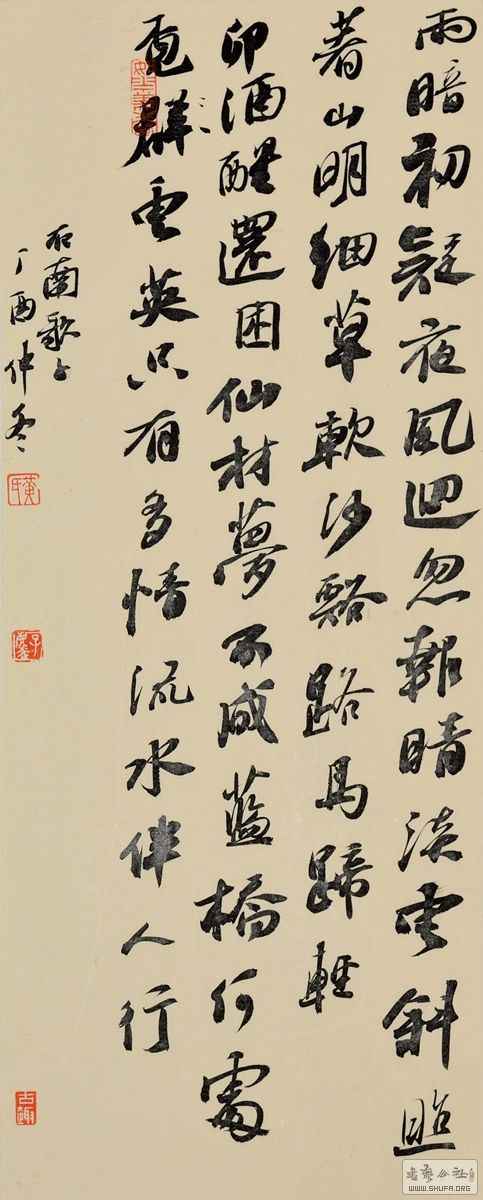 雨暗初疑夜風迴忽報晴淡雲斜照
著山明細草軟沙谿路馬蹄輕
卯酒醒還困仙材夢不成藍橋何處
覓群雲英只有多情流水伴人行
右南歌子
丁酉仲冬
黃氏
古趣
书艺公社
WWW.SHUFA.ORG